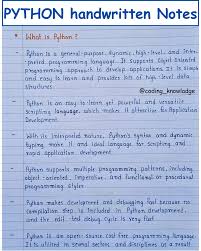 PYTHON handwritten Notes
* What is Python ?
- Python is a general-purpose, dynamic, high-level and inter-
preted programming language. It supports object oriented
programming approach to develop applications. It is simple
and easy to learn and provides lots of high-level data
structures.
@coding_knowladge
- Python is an easy to learn yet powerful and versatile
scripting language, which makes it attractive for Application
Development.
- With its interpreted nature, Python's syntax and dynamic
typing make it an ideal language for scripting and
rapid application development.
- Python supports multiple programming pattern, including
object-oriented, imperative, and functional or procedural
programming styles.
- Python makes development and debugging fast because no
compilation step is included in Python development,
and the edit, test, debug cycle is very fast.
- Python is an open-source cost free programming language.
It is utilized in several sectors and disciplines as a result